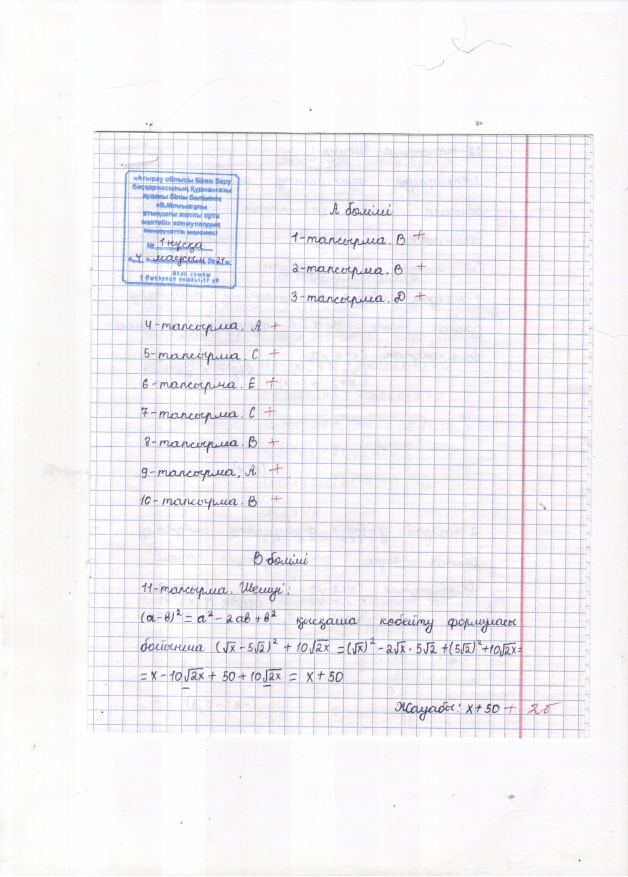 «Атырау облысы Білім беру
басқармасының Құрманғазы
ауданы білім бөлімінің
атындағы жалпы орта
мектебі» коммуналдық
мемлекеттік мекемесі
№ 1 нұсқа
«4» маусым 2021 ж.
А бөлімі
1-тапсырма. В +
2-тапсырма. В +
3-тапсырма. Д +
4-тапсырма. А +
5-тапсырма. С +
6-тапсырма. Е +
7-тапсырма. С +
8-тапсырма. В +
9-тапсырма. А +
10-тапсырма. В +
В бөлімі
11-тапсырма. Шешуі:
(а-в)² = а² - 2ав + в² қысқаша көбейту формуласы
бойынша (√x - 5√2)² + 10√2x = (√x)² - 2√x · 5√2 + (5√2)² + 10√2x =
= x - 10√2x + 50 + 10√2x = x + 50
Жауабы: x + 50 + 2б